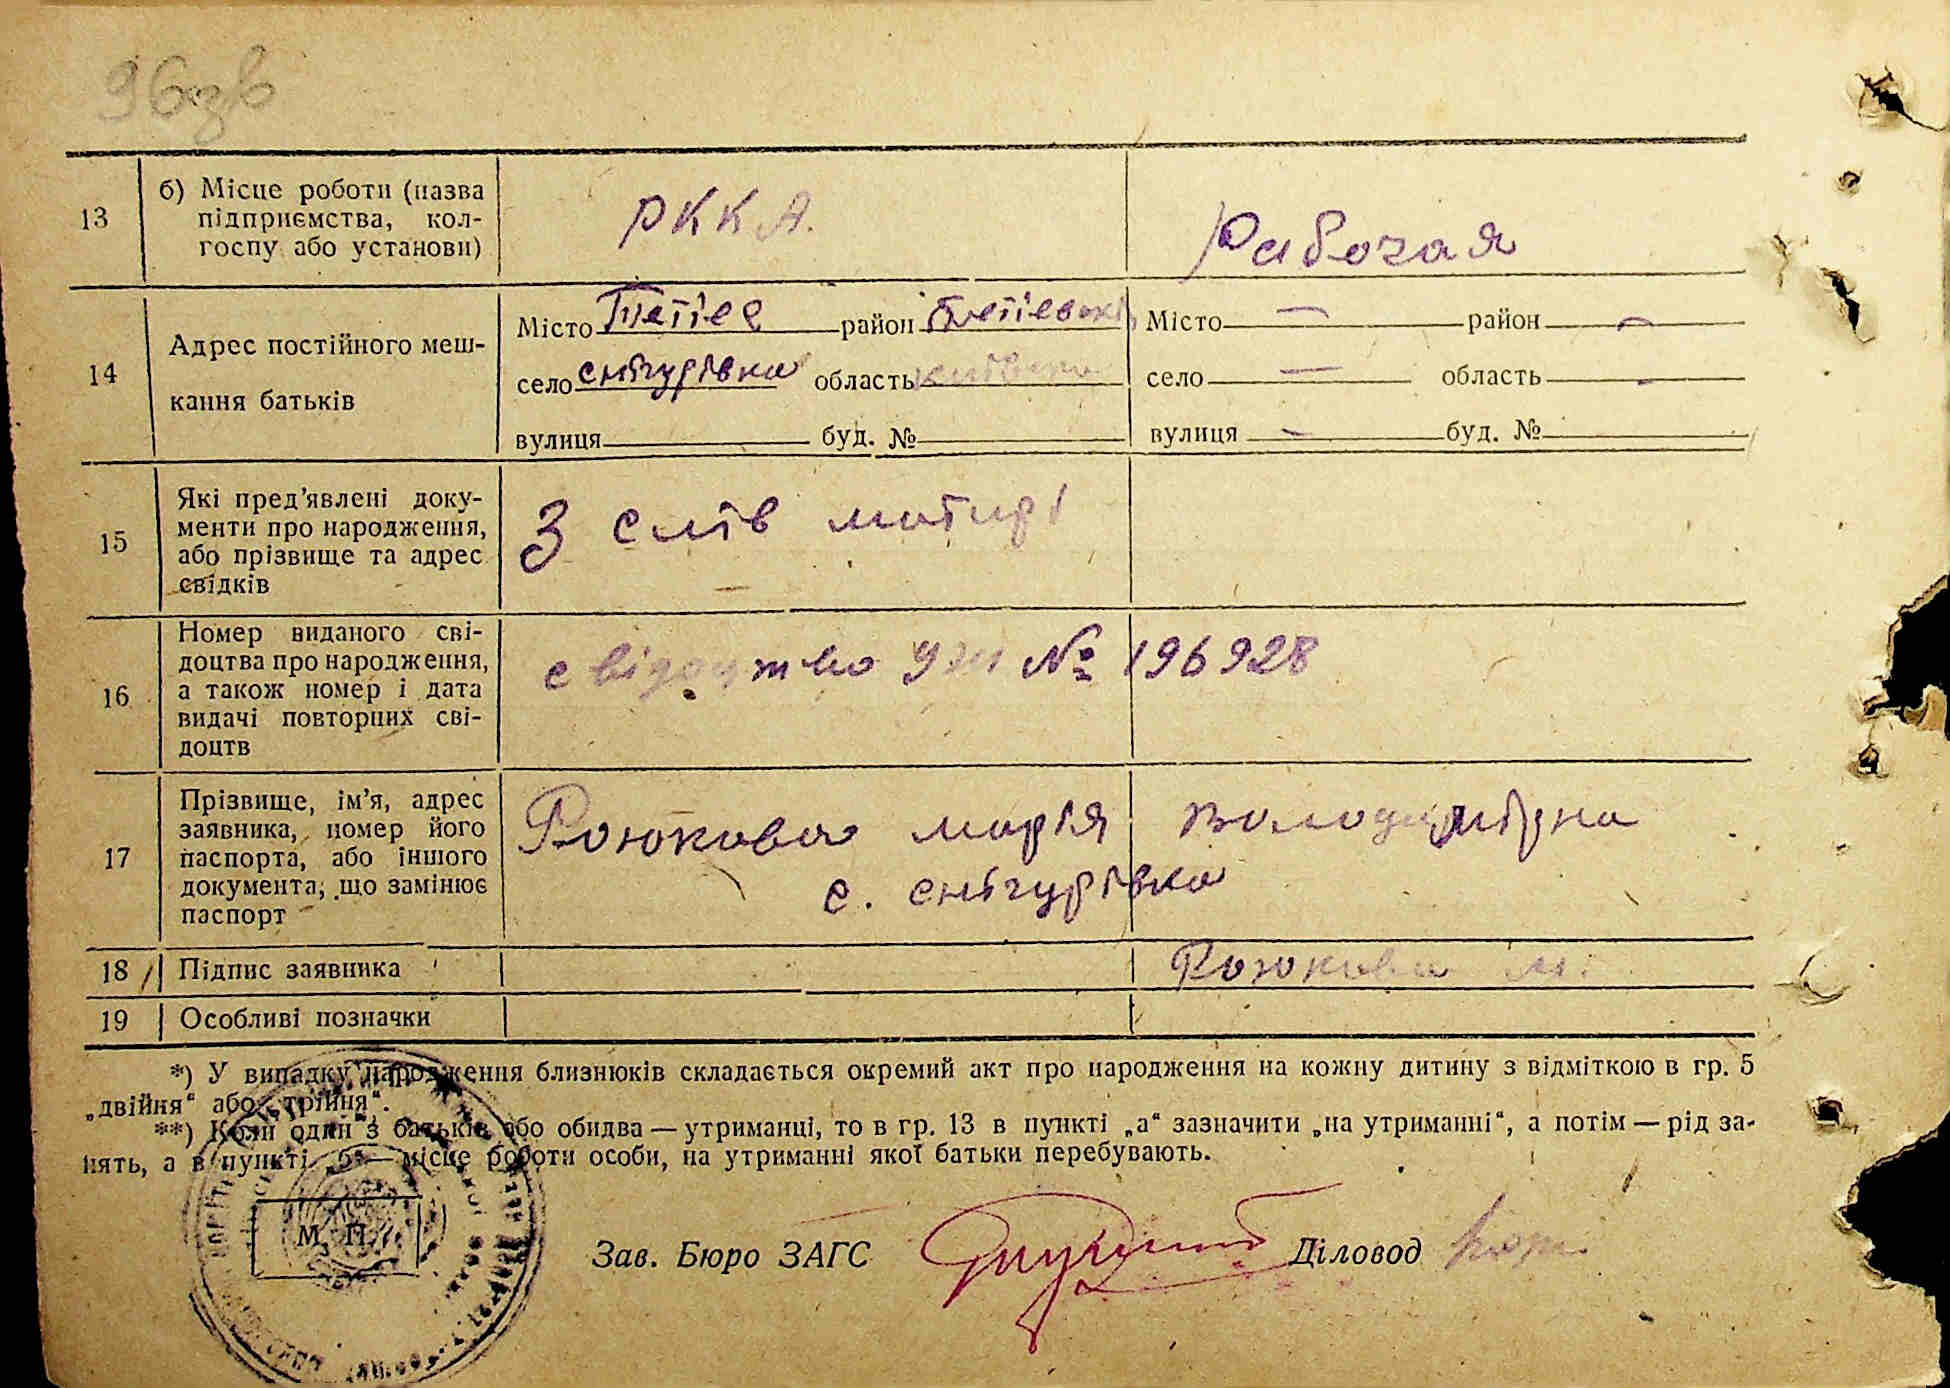 96зв
13
б) Місце роботи (назва
підприємства, кол-
госпу або установи)
РККА.
Рабочая
14
Адрес постійного меш-
кання батьків
Місто Тетіев район Тетіевськ
село Снігурівка область Київська
вулиця буд. №
Місто — район —
село — область —
вулиця — буд. №
15
Які пред’явлені доку-
менти про народження,
або прізвище та адрес
свідків
З слів матирі
16
Номер виданого сві-
доцтва про народження,
а також номер і дата
видачі повторних сві-
доцтв
свідоцтво № 196928
17
Прізвище, ім’я, адрес
заявника, номер його
паспорта, або іншого
документа, що замінює
паспорт
Роюкова Марія Володимирівна
с. Снігурівка
18
Підпис заявника
Роюкова М.
19
Особливі позначки
*) У випадку народження близнюків складається окремий акт про народження на кожну дитину з відміткою в гр. 5
„двійня“ або „трійня“.
**) Коли один з батьків або обидва — утриманці, то в гр. 13 в пункті „а“ зазначити „на утриманні“, а потім — рід за-
нять, а в пункті „б“ — місце роботи особи, на утриманні якої батьки перебувають.
М. П.
Зав. Бюро ЗАГС Діловод